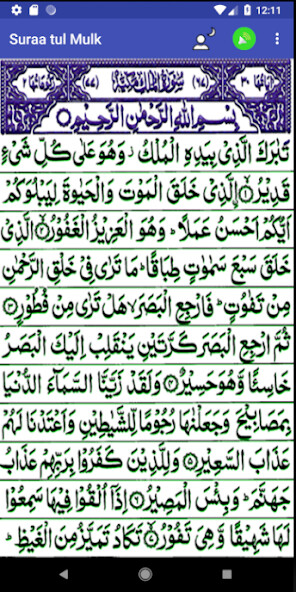 12:11
Suraa tul Mulk
اٰیَاتُهَا ٣٠ (٦٧) سُوْرَةُ الْمُلْكِ مَكِّيَّةٌ (٧٧) رُكُوْعَاتُهَا ٢
بِسْمِ اللّٰهِ الرَّحْمٰنِ الرَّحِیْمِ
تَبٰرَكَ الَّذِیْ بِیَدِهِ الْمُلْكُ ز وَهُوَ عَلٰی كُلِّ شَیْءٍ
قَدِیْرُ ۙ﴿١﴾ الَّذِیْ خَلَقَ الْمَوْتَ وَالْحَیٰوةَ لِیَبْلُوَكُمْ
اَیُّكُمْ اَحْسَنُ عَمَلًا ؕ وَهُوَ الْعَزِیْزُ الْغَفُوْرُ ۙ﴿٢﴾ الَّذِیْ
خَلَقَ سَبْعَ سَمٰوٰتٍ طِبَاقًا ؕ مَا تَرٰی فِیْ خَلْقِ الرَّحْمٰنِ
مِنْ تَفٰوُتٍ ؕ فَارْجِعِ الْبَصَرَ ۙ هَلْ تَرٰی مِنْ فُطُوْرٍ ﴿٣﴾
ثُمَّ ارْجِعِ الْبَصَرَ كَرَّتَیْنِ یَنْقَلِبْ اِلَیْكَ الْبَصَرُ
خَاسِئًا وَّهُوَ حَسِیْرٌ ﴿٤﴾ وَلَقَدْ زَیَّنَّا السَّمَآءَ الدُّنْیَا
بِمَصَابِیْحَ وَجَعَلْنٰهَا رُجُوْمًا لِّلشَّیٰطِیْنِ وَاَعْتَدْنَا لَهُمْ
عَذَابَ السَّعِیْرِ ﴿٥﴾ وَلِلَّذِیْنَ كَفَرُوْا بِرَبِّهِمْ عَذَابُ
جَهَنَّمَ ؕ وَبِئْسَ الْمَصِیْرُ ﴿٦﴾ اِذَاۤ اُلْقُوْا فِیْهَا سَمِعُوْا
لَهَا شَهِیْقًا وَّهِیَ تَفُوْرُ ۙ﴿٧﴾ تَكَادُ تَمَیَّزُ مِنَ الْغَیْظِ ؕ